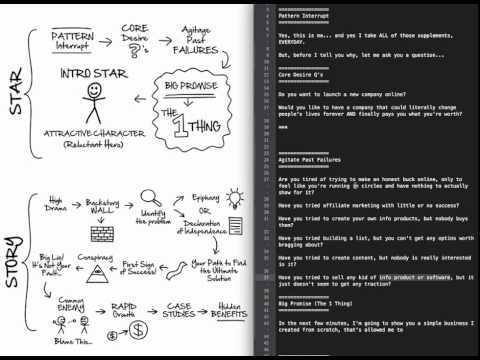 STAR
PATTERN
Interrupt
CORE
Desire
?'s
Agitate
Past
FAILURES
INTRO STAR
ATTRACTIVE CHARACTER
(Reluctant Hero)
BIG PROMISE
THE
1
THING
STORY
High
Drama
Backstory
WALL
Identify
the problem
Epiphany
OR
Declaration
of Independence
Big Lie/
It's Not Your
Fault...
Conspiracy
First Sign
of Success!
Your Path to Find
the Ultimate
Solution
Common
ENEMY
Blame This...
RAPID
Growth
$
$
CASE
STUDIES
Hidden
BENEFITS
==================
Pattern Interrupt
==================
Yes, this is me... and yes I take ALL of those supplements,
EVERYDAY.
But, before I tell you why, let me ask you a question...
==================
Core Desire Q's
==================
Do you want to launch a new company online?
Would you like to have a company that could literally change
people's lives forever AND finally pays you what you're worth?
===
==================
Agitate Past Failures
==================
Are you tired of trying to make an honest buck online, only to
feel like you're running in circles and have nothing to actually
show for it?
Have you tried affiliate marketing with little or no success?
Have you tried to create your own info products, but nobody buys
them?
Have you tried building a list, but you can't get any optins worth
bragging about?
Have you tried to create content, but nobody is really interested
in it?
Have you tried to sell any kind of info product or software, but it
just doesn't seem to get any traction?
==================
Big Promise (The 1 Thing)
==================
In the next few minutes, I'm going to show you a simple business I
created from scratch, that's allowed me to